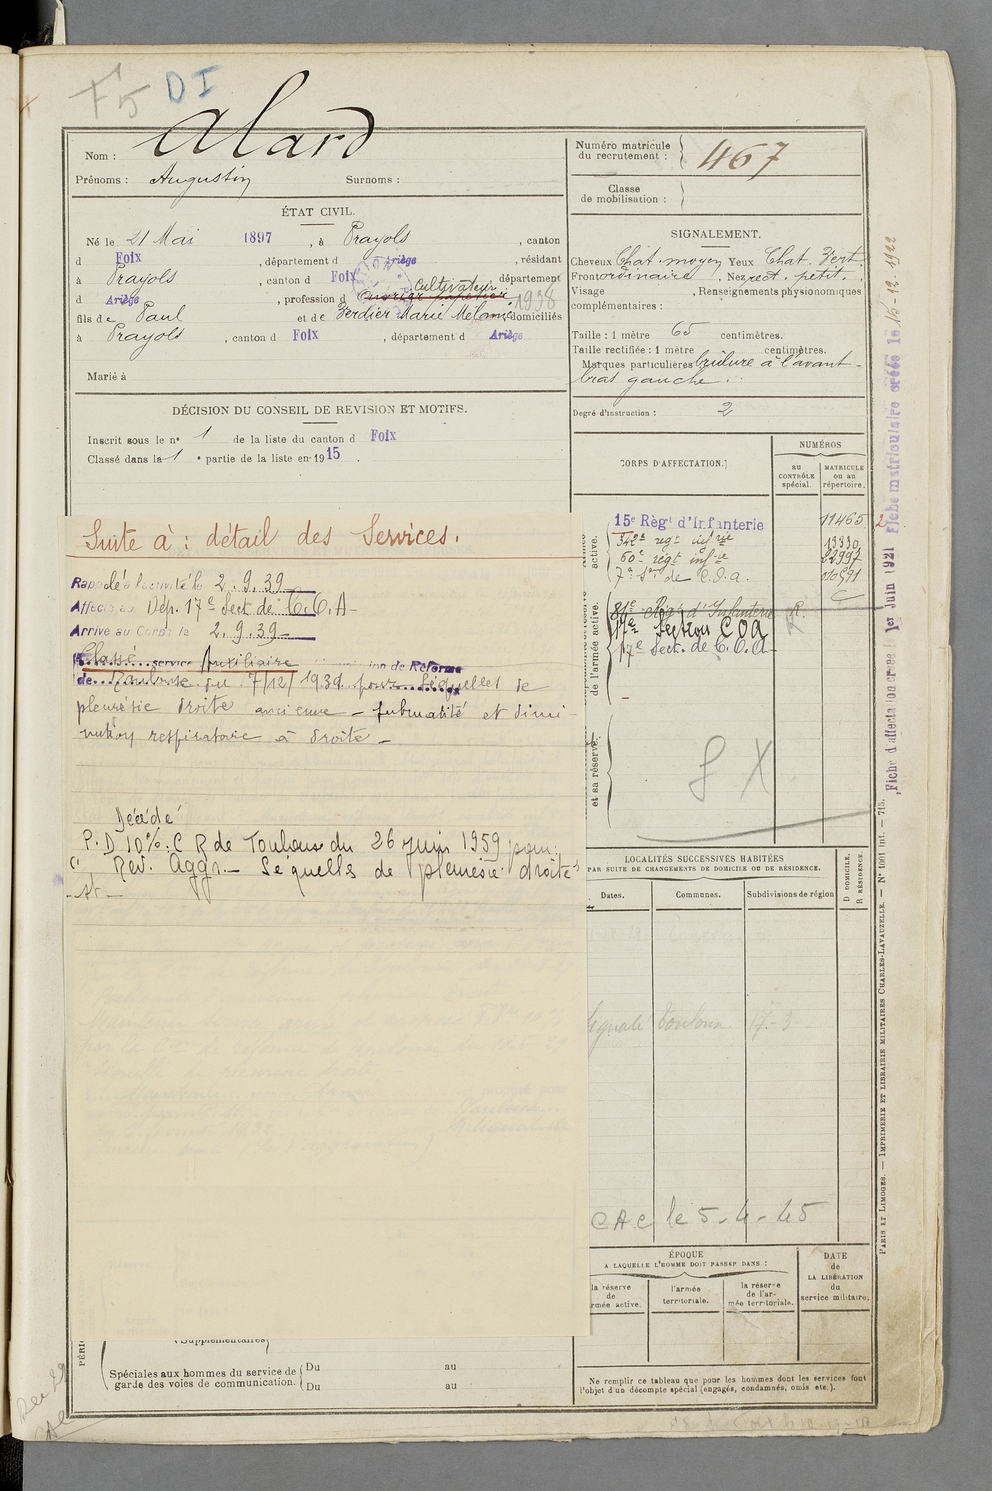 F5 DI
Alard
Nom :
Prénoms : Augustin Surnoms :
Numéro matricule du recrutement : 467
Classe de mobilisation :
ÉTAT CIVIL.
Né le 21 Mai 1897, à Prayols, canton
d Foix, département d Ariège, résidant
à Prayols, canton d Foix, département
d Ariège, profession d Ouvrier papetier Cultivateur 1938
fils de Paul et de Verdier Marie Mélanie domiciliés
à Prayols, canton d Foix, département d Ariège
Marié à
DÉCISION DU CONSEIL DE REVISION ET MOTIFS.
Inscrit sous le nº 1 de la liste du canton d Foix
Classé dans la 1e partie de la liste en 1915.
SIGNALEMENT.
Cheveux Chat. moyen Yeux Chat. Vert
Front ordinaire, Nez rect. petit.
Visage , Renseignements physionomiques
complémentaires :
Taille : 1 mètre 65 centimètres.
Taille rectifiée : 1 mètre centimètres.
Marques particulières brûlure à l'avant-
bras gauche.
Degré d'instruction : 2
CORPS D'AFFECTATION.
NUMÉROS
au CONTRÔLE spécial.
MATRICULE ou au répertoire.
15e Régt d'Infanterie 11465
342e regt infrie 13330
60e régt infie
7e Son de C.O.A.
81e Régt d'Infanterie R.
17e Section COA
17e Sect. de C.O.A.
active.
de l'armée active.
et sa réserve.
Suite à : détail des Services.
Rappelé à l'activité le 2.9.39
Affecté au Dép. 17e Sect de C.O.A-
Arrivé au Corps le 2.9.39
Classé service Auxiliaire ion de Réforme
de Toulouse du 7/12/1939 pour Séquelles de
pleurésie droite ancienne - submatité et dimi-
nution respiratoire à droite -
Décédé
P. D 10% C R de Toulouse du 26 juin 1959 pour:
"Rev. Aggr. - Séquelles de pleurésie droite"
LOCALITÉS SUCCESSIVES HABITÉES
PAR SUITE DE CHANGEMENTS DE DOMICILE OU DE RÉSIDENCE.
Dates. Communes. Subdivisions de région
D DOMICILE.
R RÉSIDENCE.
Signalé Toulouse 17-3
CAC le 5-4-45
ÉPOQUE
A LAQUELLE L'HOMME DOIT PASSER DANS :
la réserve de l'armée active.
l'armée territoriale.
la réserve de l'armée territoriale.
DATE de LA LIBÉRATION du service militaire.
Ne remplir ce tableau que pour les hommes dont les services font
l'objet d'un décompte spécial (engagés, condamnés, omis etc.).
(Supplémentaires)
Spéciales aux hommes du service de garde des voies de communication. Du au
Du au
Fiche d'affectation créée le 1er Juin 1921 Fiche matriculaire créée le 15-12-1922
PARIS ET LIMOGES. — IMPRIMERIE ET LIBRAIRIE MILITAIRES CHARLES-LAVAUZELLE. — Nº 1001 Int. — 715.